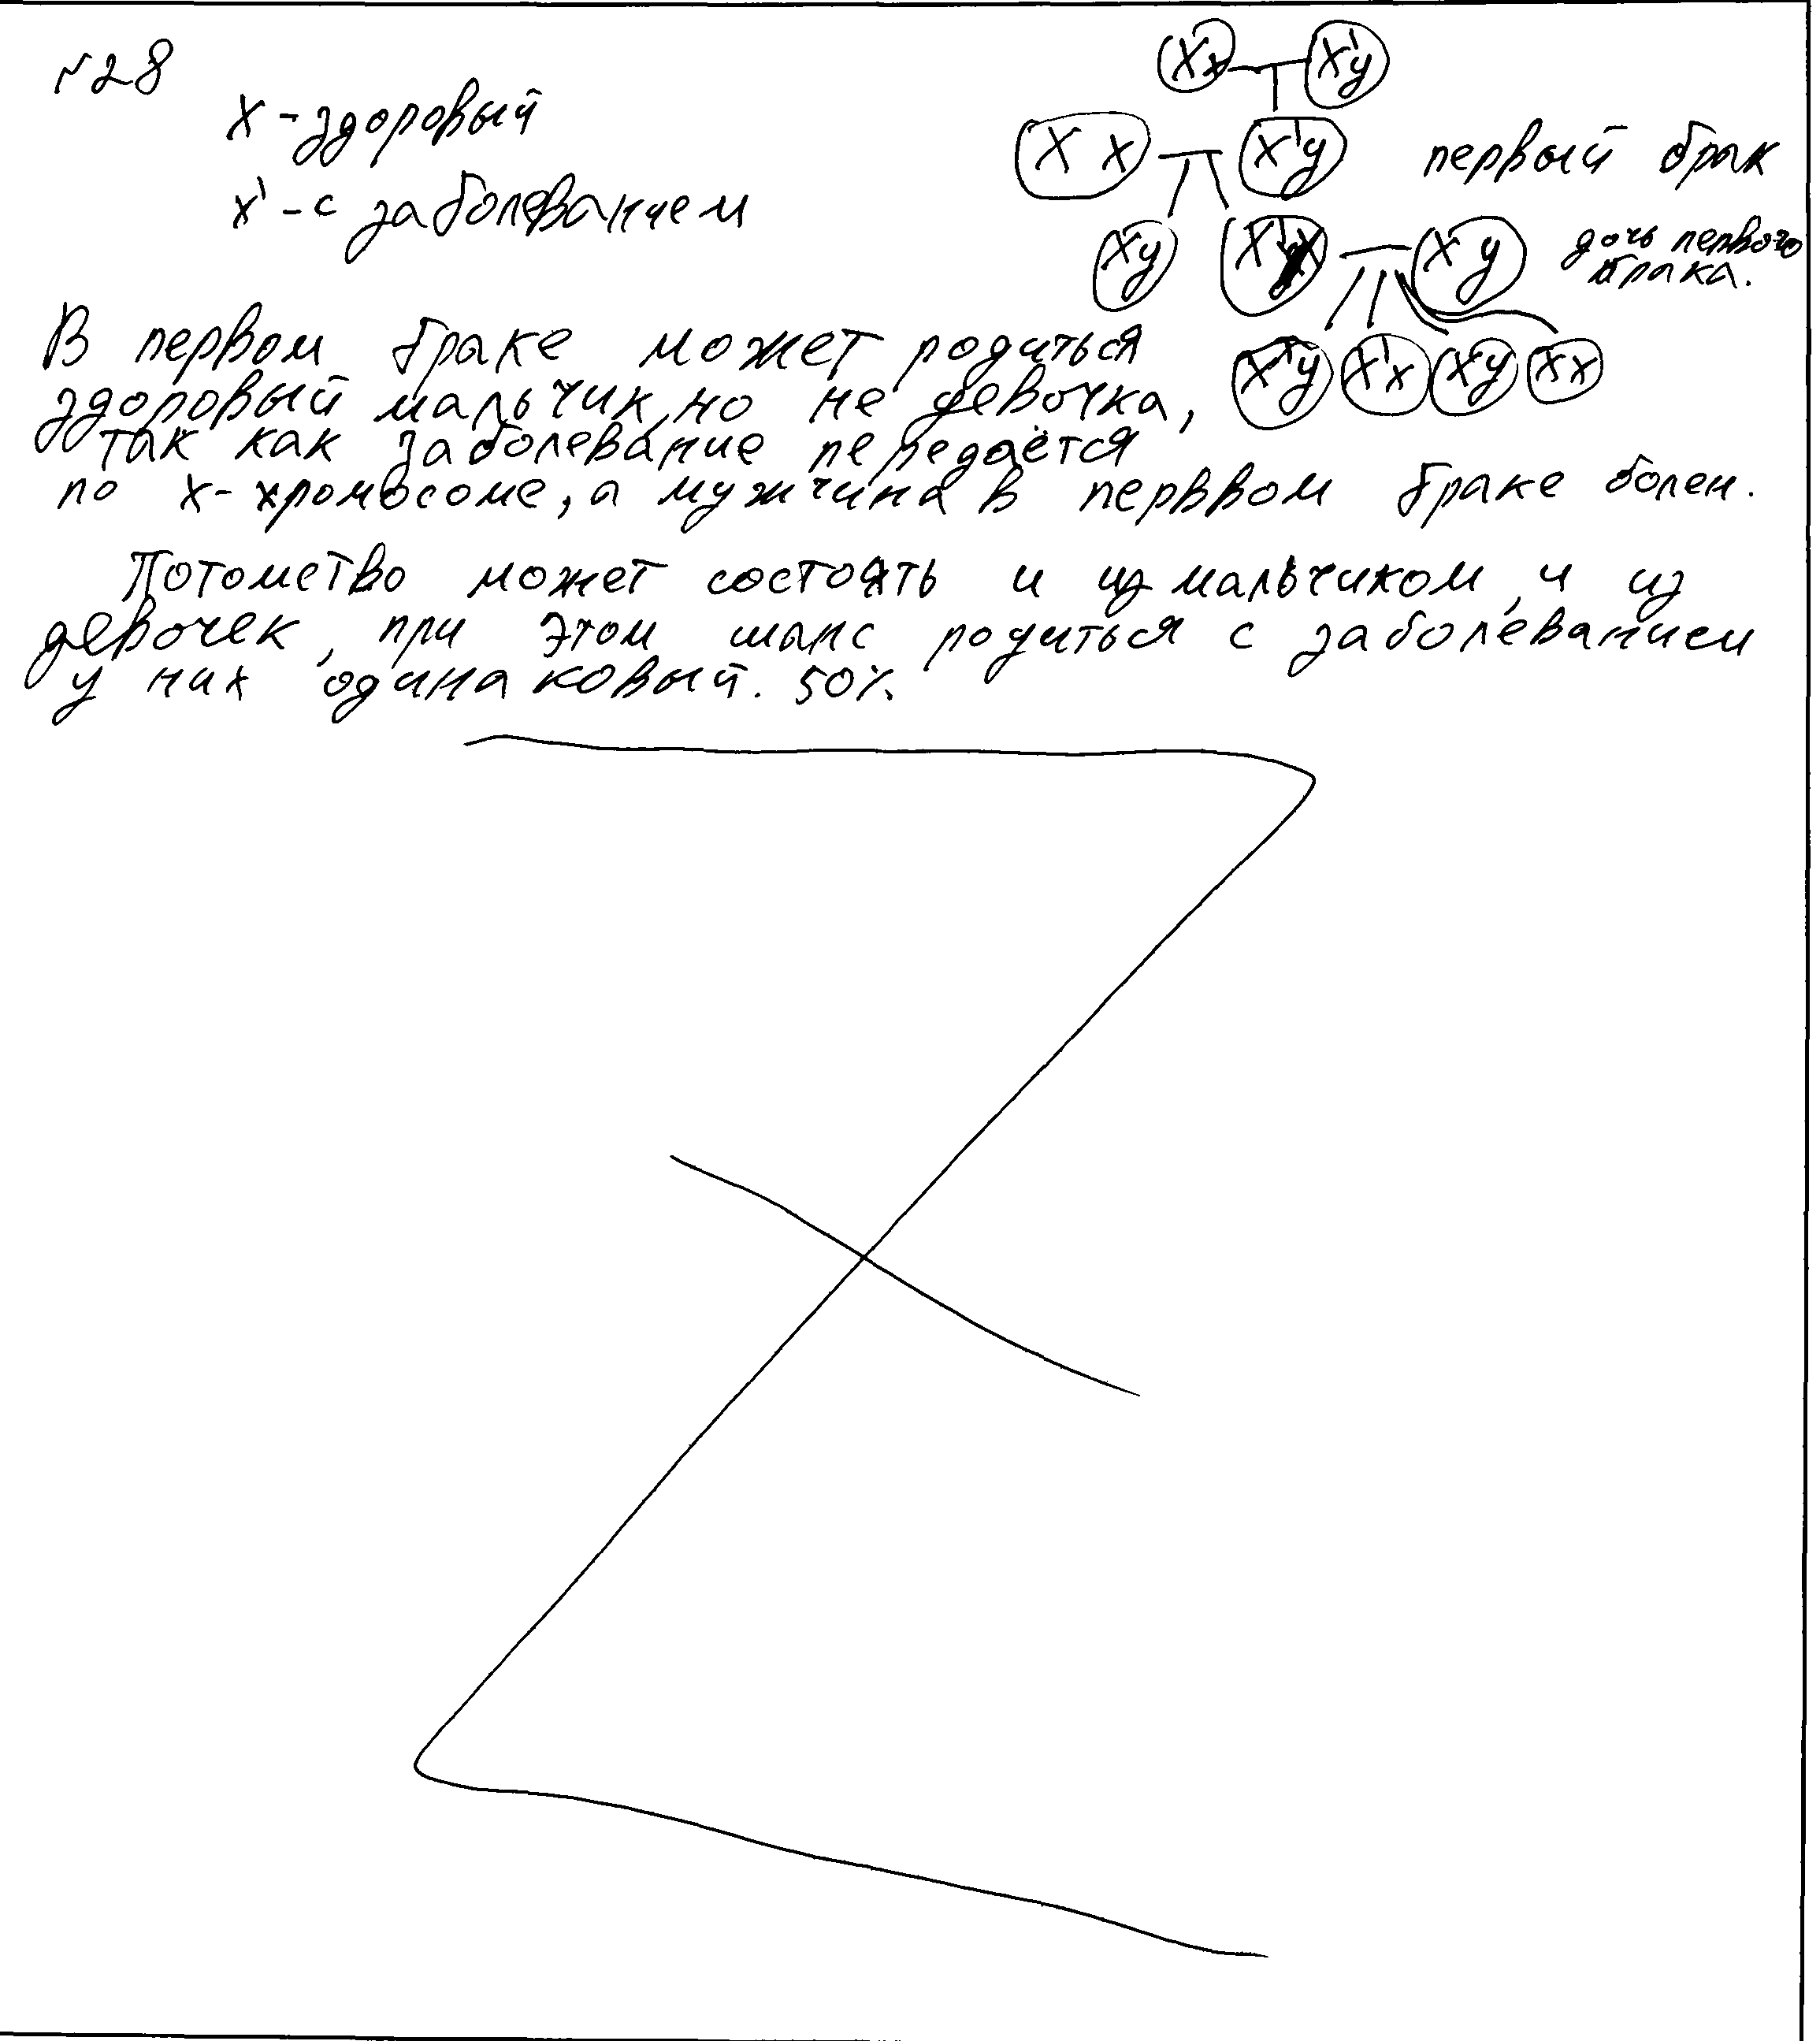 №28
X - здоровый
X' - с заболеванием
Xx X'y
X x X'y первый брак
Xy X'X Xy дочь первого
брака.
X'y X'x Xy Xx
В первом браке может родиться
здоровый мальчик, но не девочка,
так как заболевание передаётся
по х-хромосоме, а мужчина в перввом браке болен.
Потомство может состоять и из мальчиком, и из
девочек, при этом шанс родиться с заболеванием
у них одинаковый. 50%.